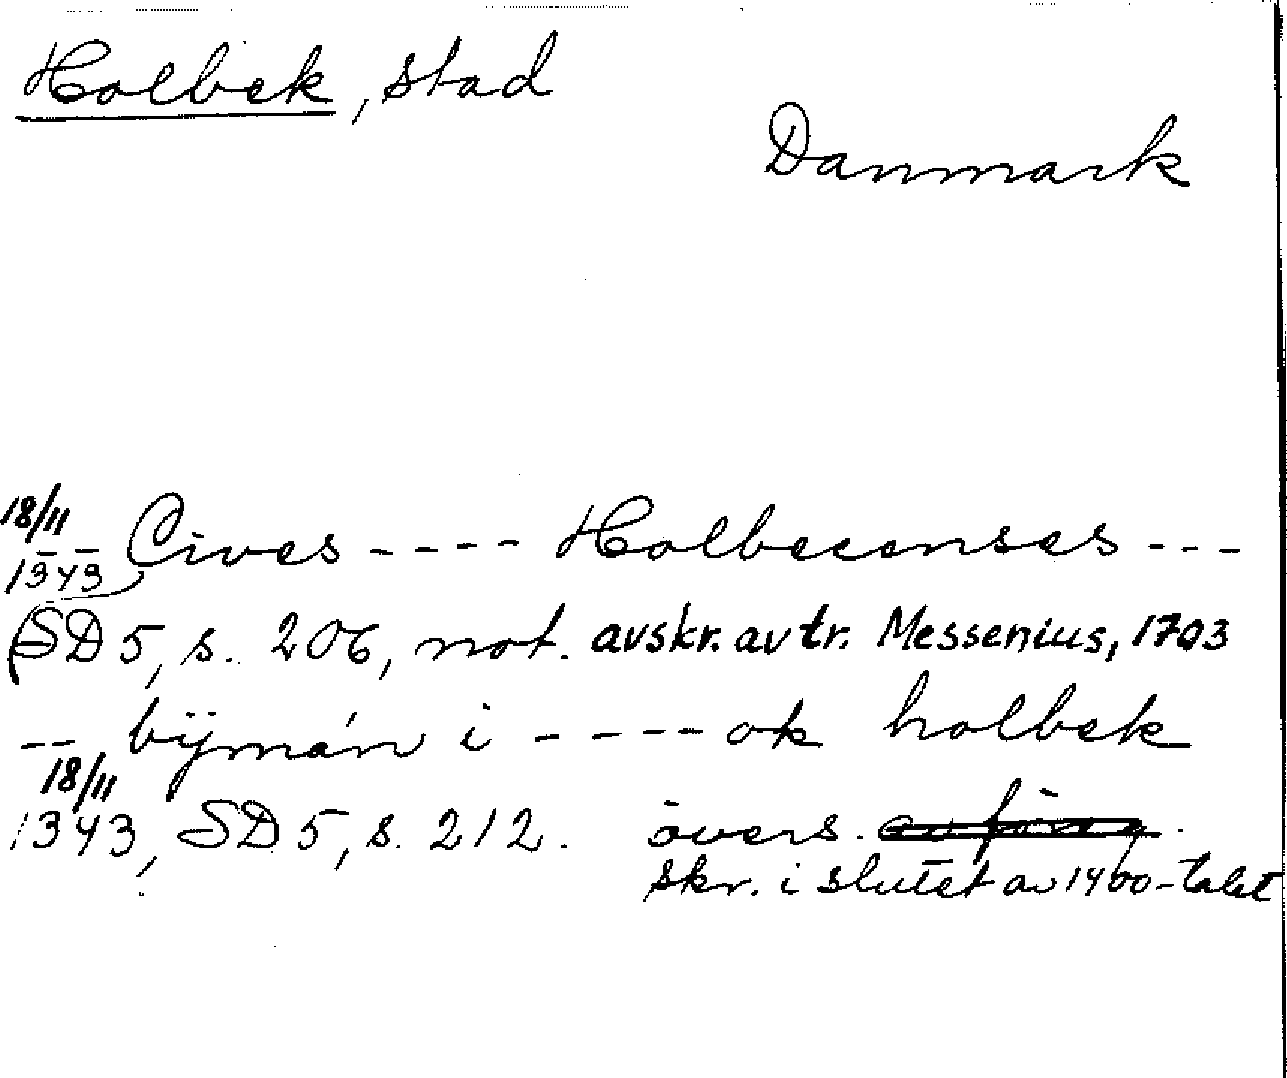 Holbek, stad
Danmark
18/11
1343 Cives ---- Holbecenses ---
(SD 5, s. 206, not. avskr. av tr. Messenius, 1703
-- bÿmán i ---- ok holbek
18/11
1343, SD 5, s. 212. övers.
skr. i slutet av 1400-talet